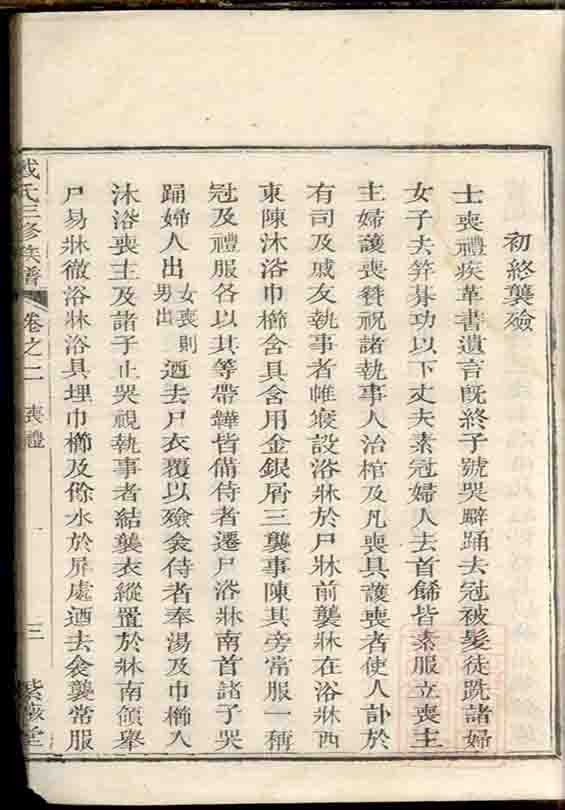 初終襲殮
士喪禮疾革書遺言旣終子號哭擗踊去冠被髮徒跣諸婦
女子去笄朞功以下丈夫素冠婦人去首餙皆素服立喪主
主婦護喪賛祝諸執事人治棺及凡喪具護喪者使人訃於
有司及戚友執事者帷寢設浴牀於尸牀前襲牀在浴牀西
東陳沐浴巾櫛含具含用金銀屑三襲事陳其旁常服一稱
冠及禮服各以其等帶韡皆備侍者遷尸浴牀南首諸子哭
踊婦人出女喪則男出廼去尸衣覆以殮衾侍者奉湯及巾櫛入
沐浴喪主及諸子止哭視執事者結襲衣縱置於牀南領舉
尸易牀徹浴牀浴具埋巾櫛及餘水於屏處廼去衾襲常服
氏三修族譜
卷之二
喪禮
三
紫
堂